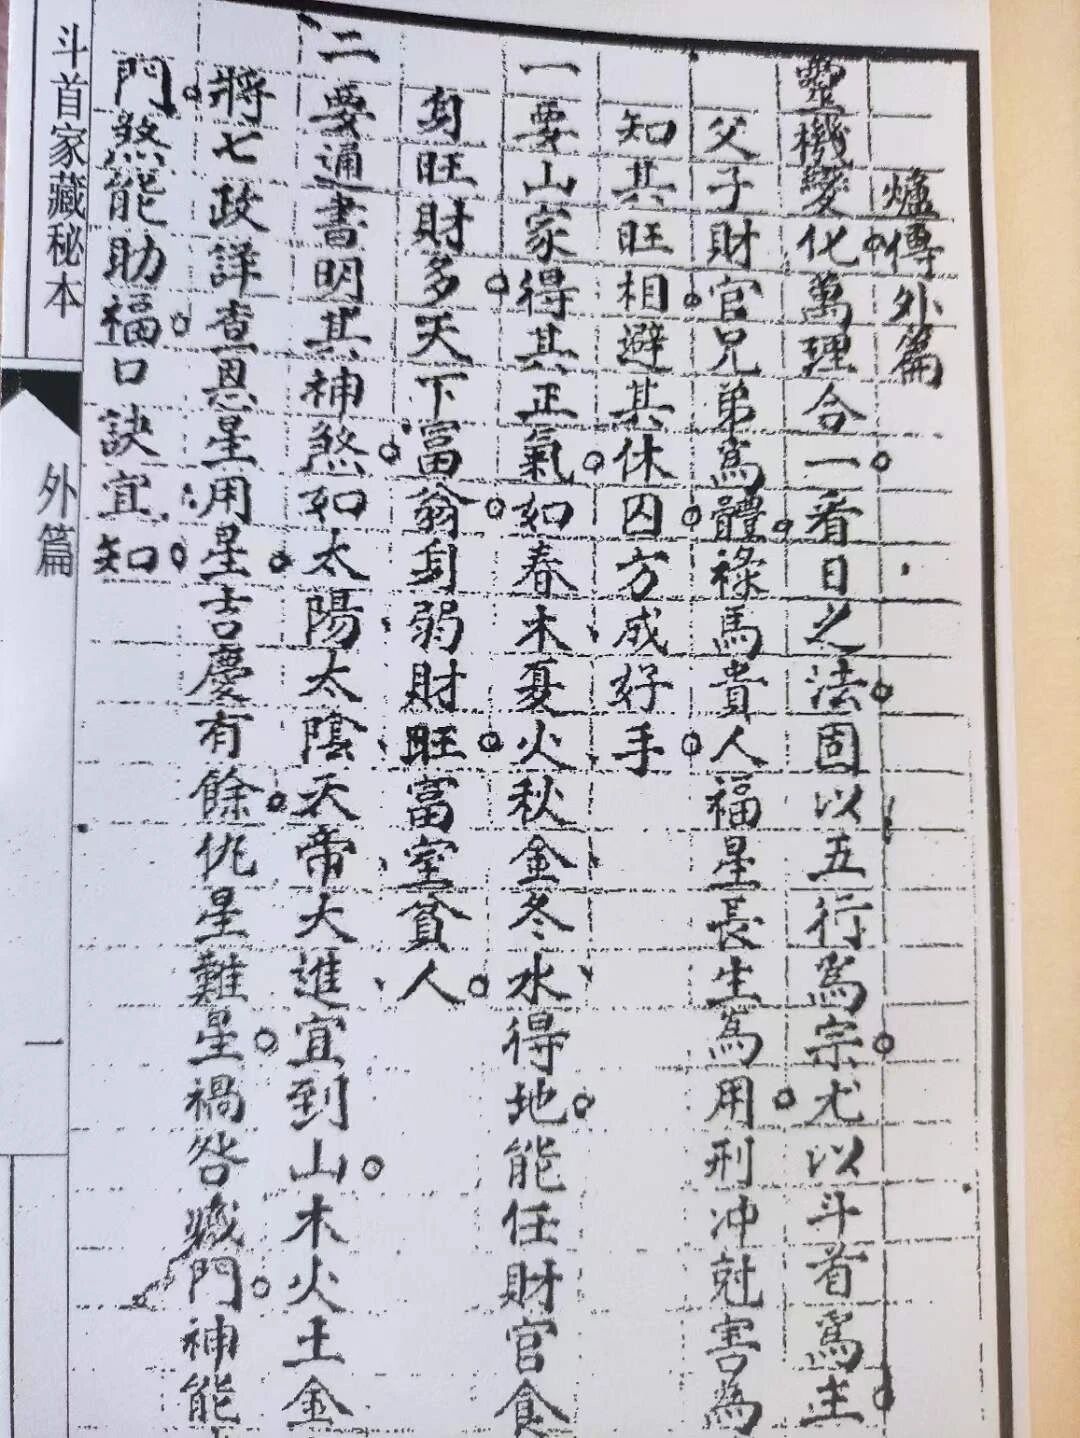 爐傳外篇
璽機變化。萬理合一。看日之法。固以五行爲宗。尤以斗首爲主。
父子財官兄弟爲體。祿馬貴人福星長生爲用。刑冲尅害爲
知其旺相。避其休囚。方成好手。
一要山家得其正氣。如春木、夏火、秋金、冬水、得地。能任財官食
身旺財多。天下富翁。身弱財旺。富室貧人。
二要通書明其神煞。如太陽、太陰、天帝、大進、宜到山。木火土金
將七政詳查。恩星用星。吉慶有餘。仇星難星。禍咎藏門。神能
門。煞能助福。口訣宜知。
斗首家藏秘本
外篇
一